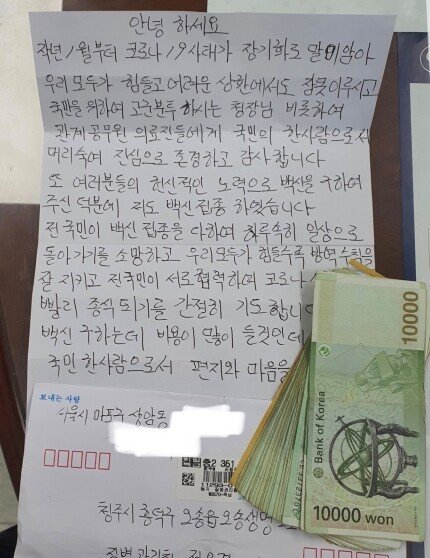 안녕 하세요
작년 1월부터 코로나 19사태가 장기화로 말미암아
우리 모두가 힘들고 어려운 상황에서도 잠못이루시고
국민을 위하여 고군분투 하시는 청장님 비롯하여
관계공무원 의료진들에게 국민의 한사람으로서
머리숙여 진심으로 존경하고 감사합니다
또 여러분들의 헌신적인 노력으로 백신을 구하여
주신 덕분에 저도 백신접종 하였습니다
전 국민이 백신 접종을 다하여 하루속히 일상으로
돌아가기를 소망하고 우리모두가 힘들수록 방역수칙을
잘 지키고 전국민이 서로협력하여 코로나
빨리 종식되기를 간절히 기도합니
백신 구하는데 비용이 많이 들것인데
국민 한사람으로서 편지와 마음을
보내는 사람
서울시 마포구 상암동
청주시 흥덕구 오송읍 오송생명
10000
Bank of Korea
10000 won